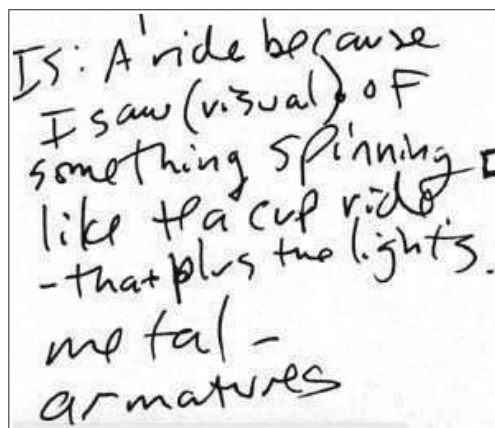 Is: A ride because
I saw (visual) of
something spinning
like tea cup ride
-that plus the lights.
metal-
armatures